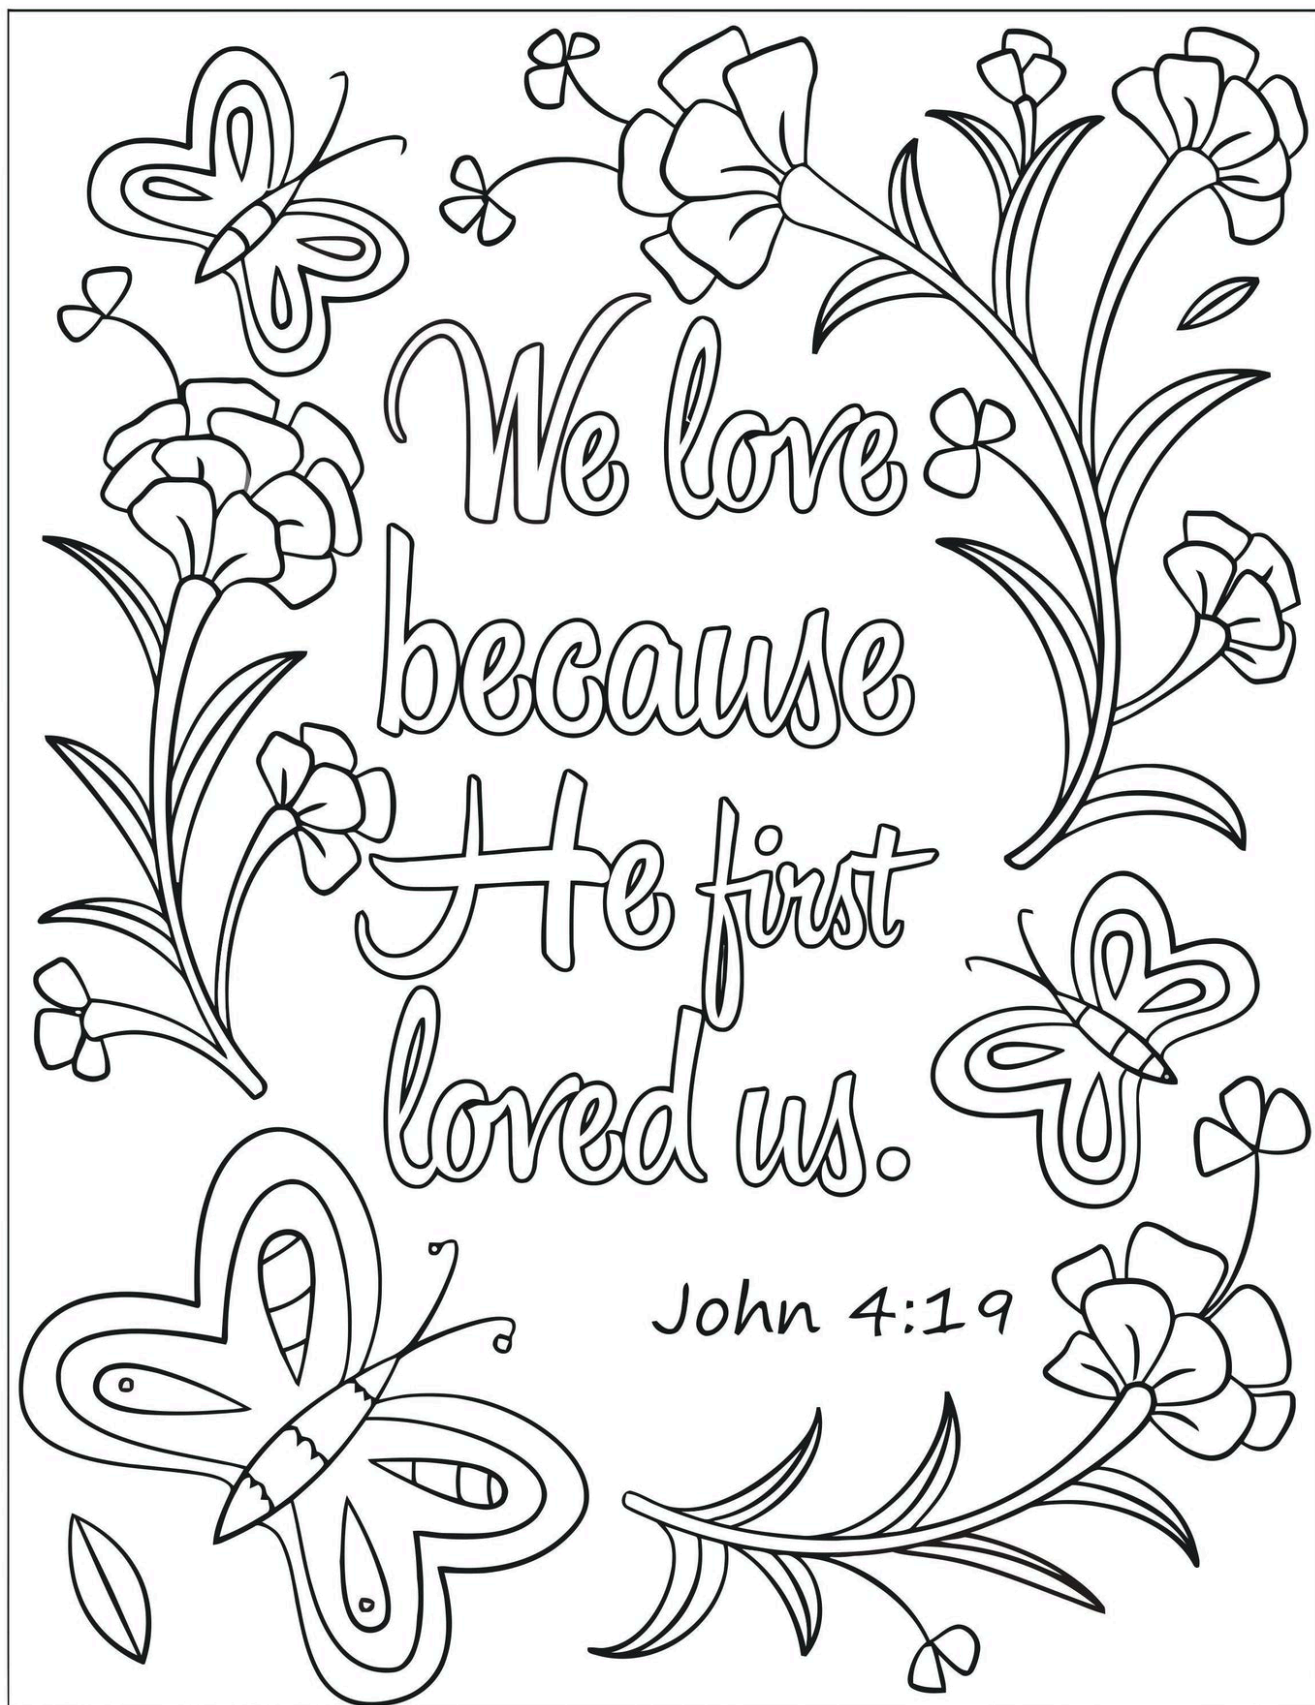 We love
because
He first
loved us.
John 4:19